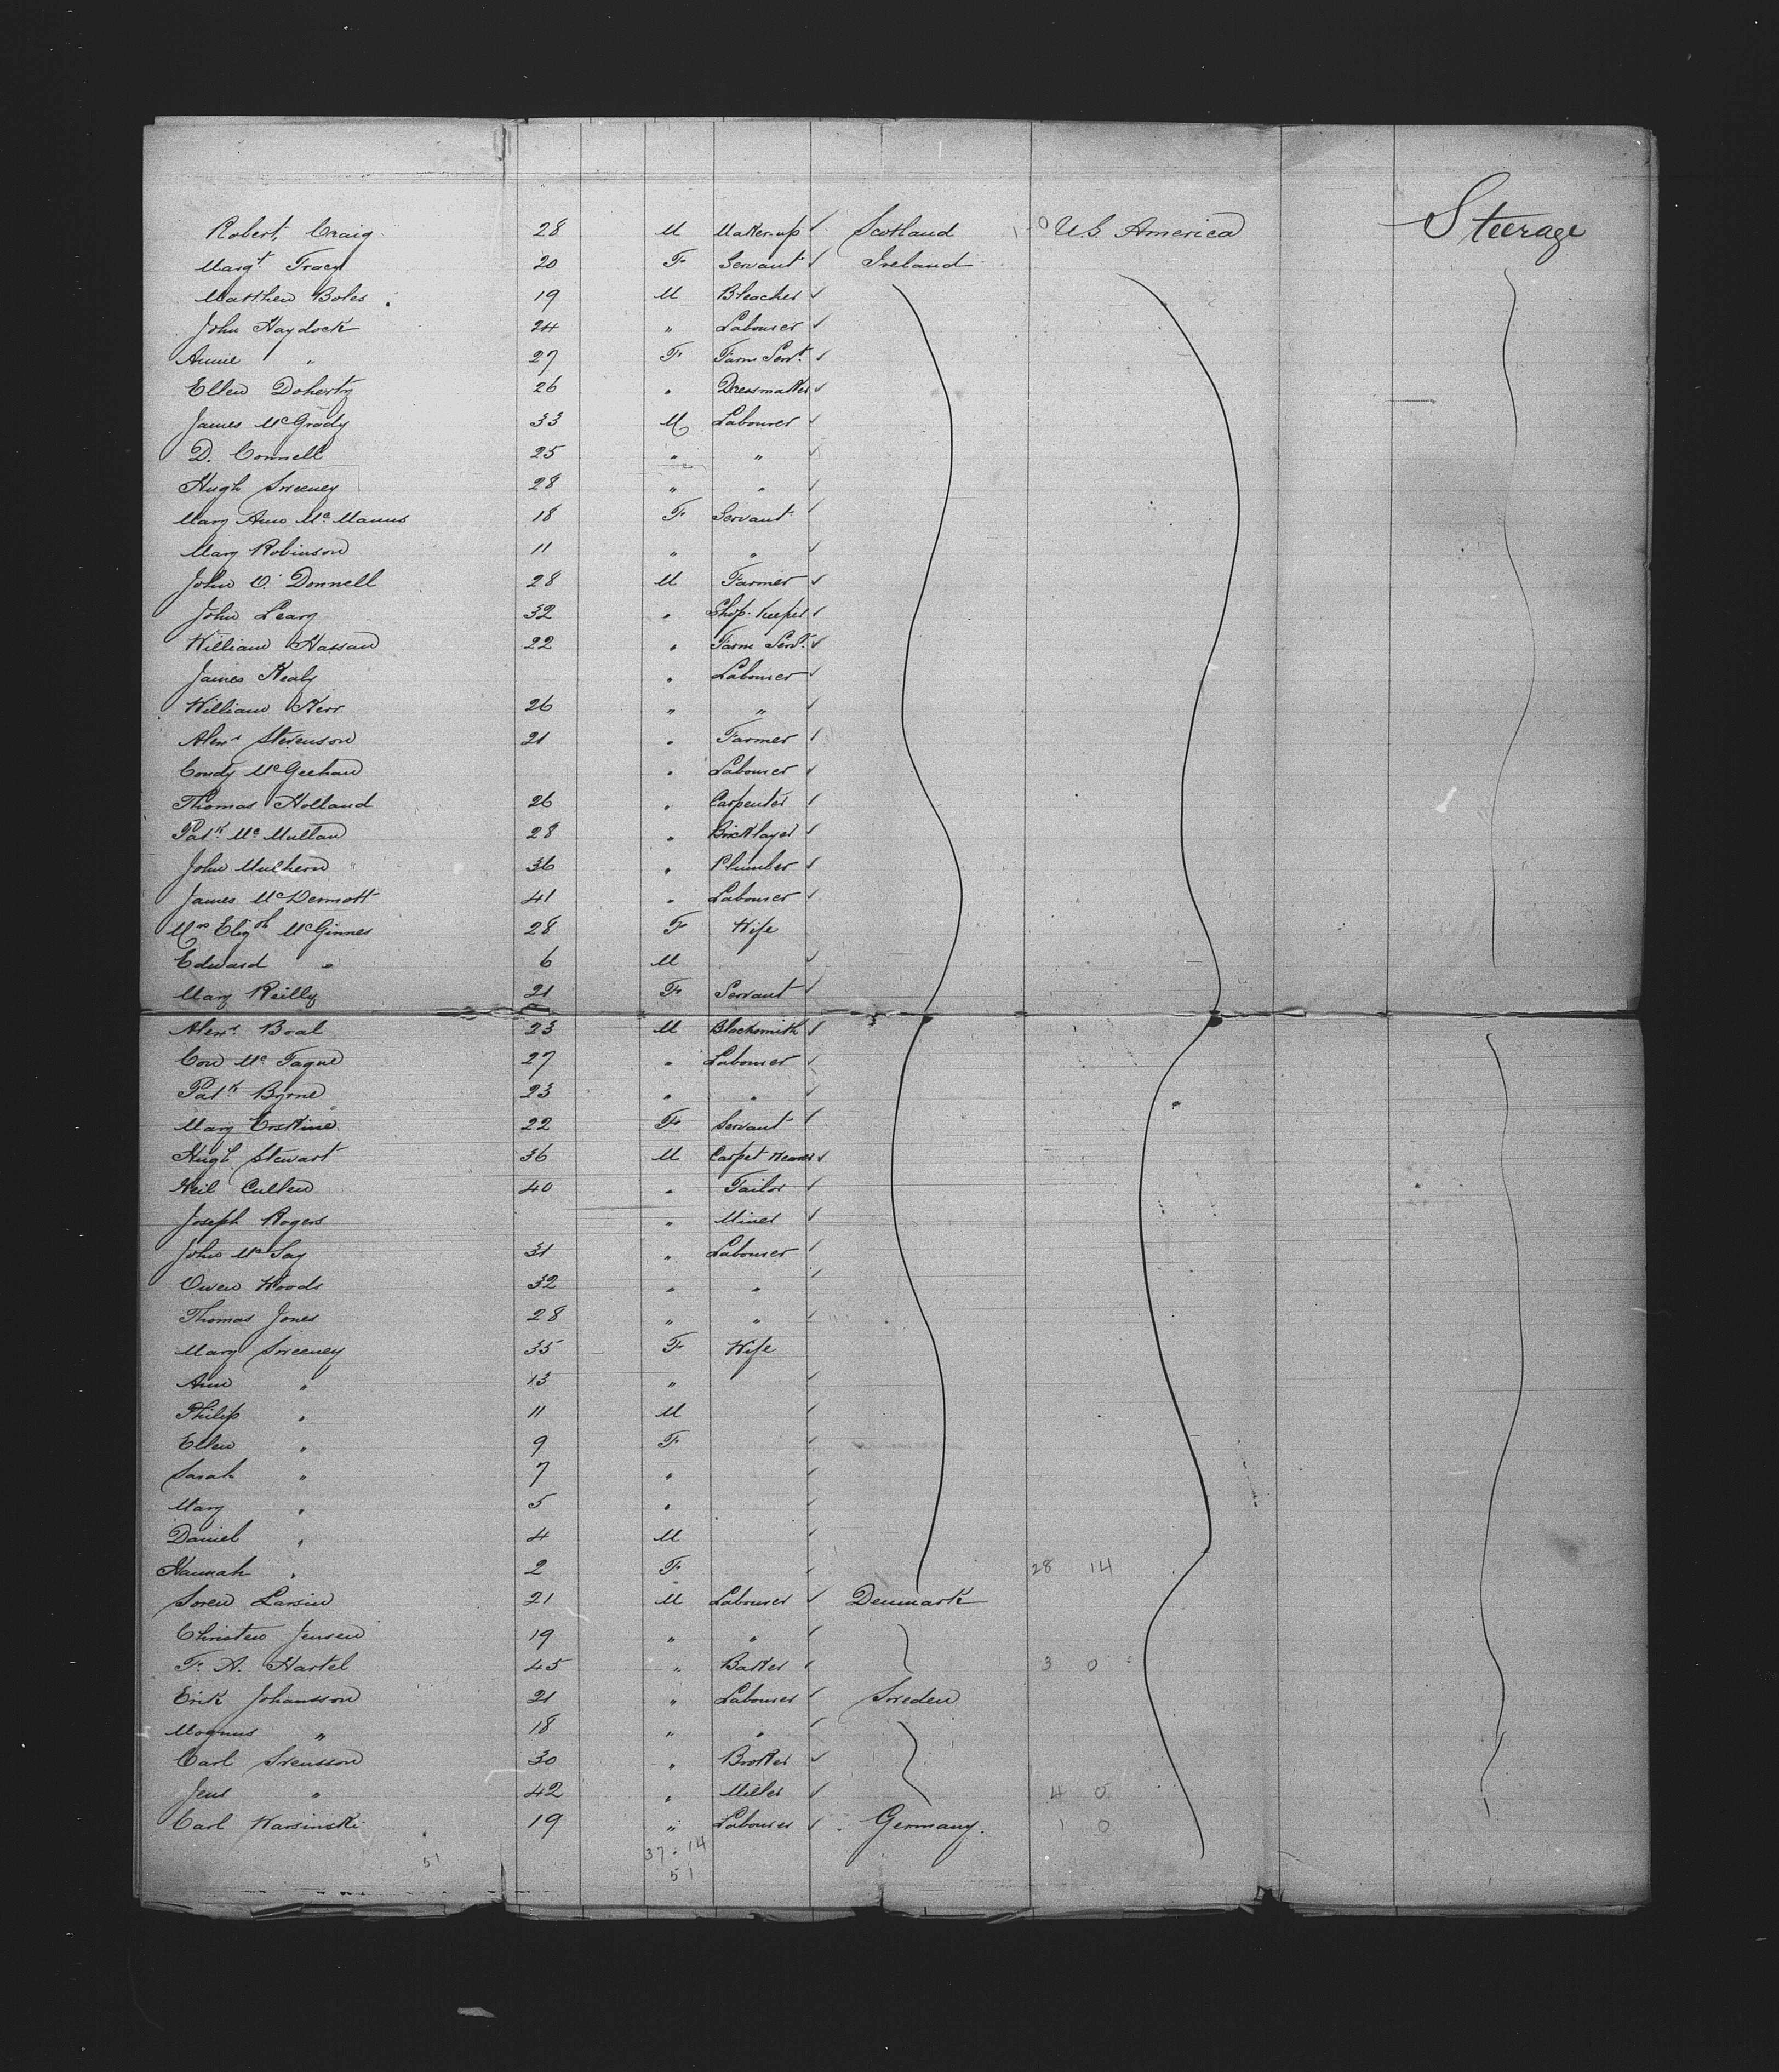 Steerage
Robert Craig 28 M Maker-up ✓ Scotland 1-0 U.S. America
Margt. Tracy 20 F Servant ✓ Ireland
Matthew Boles 19 M Bleacher ✓
John Haydock 24 " Labourer ✓
Annie " 27 F Farm Servt. ✓
Ellen Doherty 26 " Dressmaker ✓
James McGrady 33 M Labourer ✓
D. Connell 25 " " ✓
Hugh Sweeney 28 " " ✓
Mary Ann McManus 18 F Servant ✓
Mary Robinson 11 " " ✓
John O'Donnell 28 M Farmer ✓
John Leary 32 " Shop-Keeper ✓
William Hassan 22 " Farm Servt. ✓
James Healy " Labourer ✓
William Kerr 26 " " ✓
Alexr. Stevenson 21 " Farmer ✓
Condy McGeehan " Labourer ✓
Thomas Holland 26 " Carpenter ✓
Patk. McMullan 28 " Bricklayer ✓
John Mulhern 36 " Plumber ✓
James McDermott 41 " Labourer ✓
Mrs Elizth McGinnes 28 F Wife
Edward " 6 M ✓
Mary Reilly 21 F Servant ✓
Alexr. Boal 23 M Blacksmith ✓
Con McTague 27 " Labourer ✓
Patk. Byrne 23 " " ✓
Mary Erskine 22 F Servant ✓
Hugh Stewart 36 M Carpet Weaver ✓
Neil Cullen 40 " Tailor ✓
Joseph Rogers " Miner ✓
John McSay 31 " Labourer ✓
Owen Woods 32 " " ✓
Thomas Jones 28 " " ✓
Mary Sweeney 35 F Wife
Ann " 13 " ✓
Philip " 11 M ✓
Ellen " 9 F ✓
Sarah " 7 " ✓
Mary " 5 " ✓
Daniel " 4 M ✓
Hannah " 2 F ✓ 28 14
Soren Larsin 21 M Labourer ✓ Denmark
Christen Jensen 19 " " ✓
F. A. Hartel 45 " Baker ✓ 3 0
Erik Johansson 21 " Labourer ✓ Sweden
Magnus " 18 " " ✓
Carl Svensson 30 " Broker ✓
Jens " 42 " Miller ✓ 4 0
Carl Karsinski 19 " Labourer ✓ Germany. 1 0
37 . 14
51 51